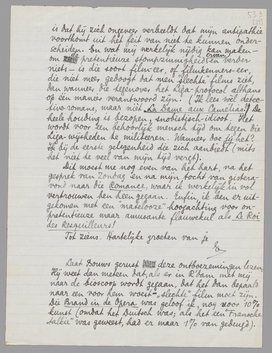 is dat hij zich ongeveer verbeeldt dat mijn antipathie
voortkomt uit het feit van neet te kunnen onder-
scheiden. En wat mij werkelijk nijdig kan maken
om pretentieuze stompzinnigheid en verder
niets – is die soort filmeer, of filmkennerseer,
die niet meer gedoogt dat men slechte films ziet,
dan wanneer die tegenover het -protocol althans
op één manier verantwoord zijn. (Ik lees wel detec-
tive-romans, maar wel La Dame aux Camélias!) De
heele houding is bezopen, snobistisch-idioot. Het
wordt voor een behoorlijk mensch tijd om tegen die
-wijsheden te militeeren. Wanneer doe jij het?
Ik bij de eerste gelegenheid die zich aanbiedt (mits
het niet de veel van mijn tijd vergt).
Dit moest me nog even van het hart, na het
gesprek van Zondag en na mijn tocht van gister-
avond naar die Romance, waar ik werkelijk in vol
vertrouwen ben heen gegaan. Enfin, ik ben er uit-
gekomen met een matelooze hoogachting voor on-
pretentieuze maar amusante flauwekul als Le Roi
des Resquilleurs!
Tot ziens. Hartelijke groeten van je
E.
Laat Bouws gerust deze ontboezemingen lezen.
Hij weet dan meteen dat, als er in R'dam met mij
naar de bioscoop wordt gegaan, dat het dan bepaald
naar een voor hem woest "slechte" film moet zijn.
Die Brand in de Opera was geloof ik, nog voor 10%
kunst (omdat het Duitsch was; als het een Fransche
was geweest, had er maar 1% van gedeugd).